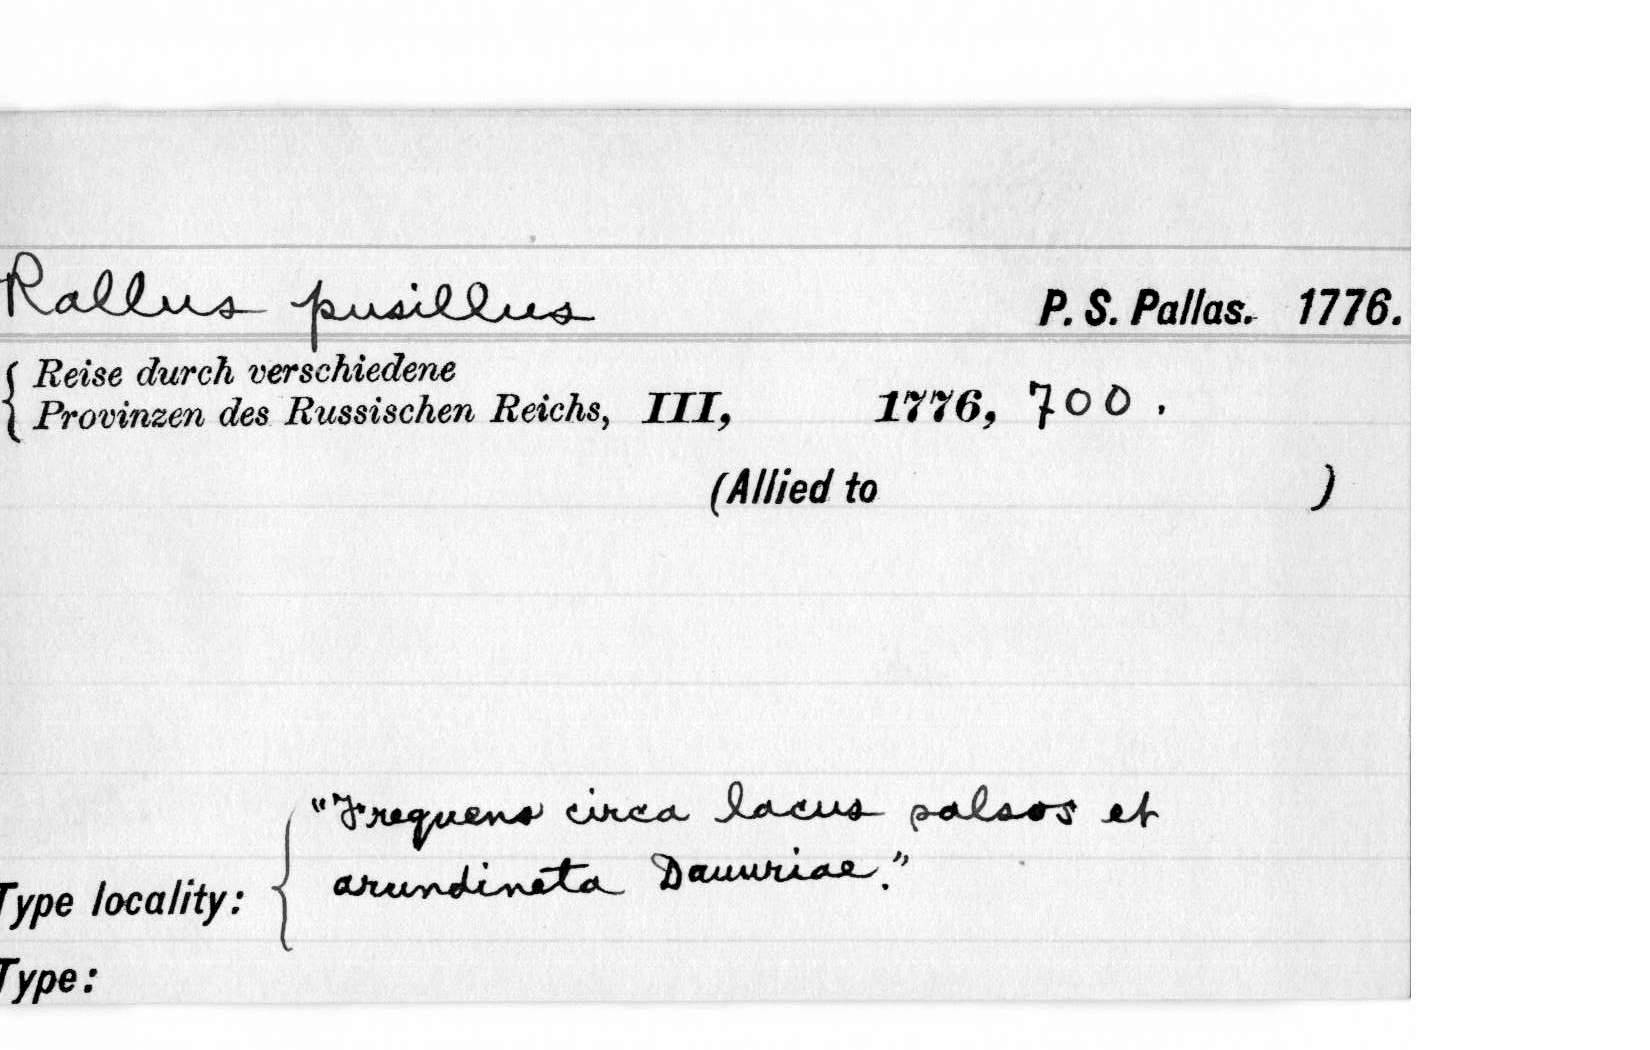 Rallus pusillus P. S. Pallas. 1776.
{ Reise durch verschiedene
Provinzen des Russischen Reichs, III, 1776, 700.
(Allied to )
"Frequens circa lacus salsos et
arundineta Dauuriae."
Type locality: {
Type: